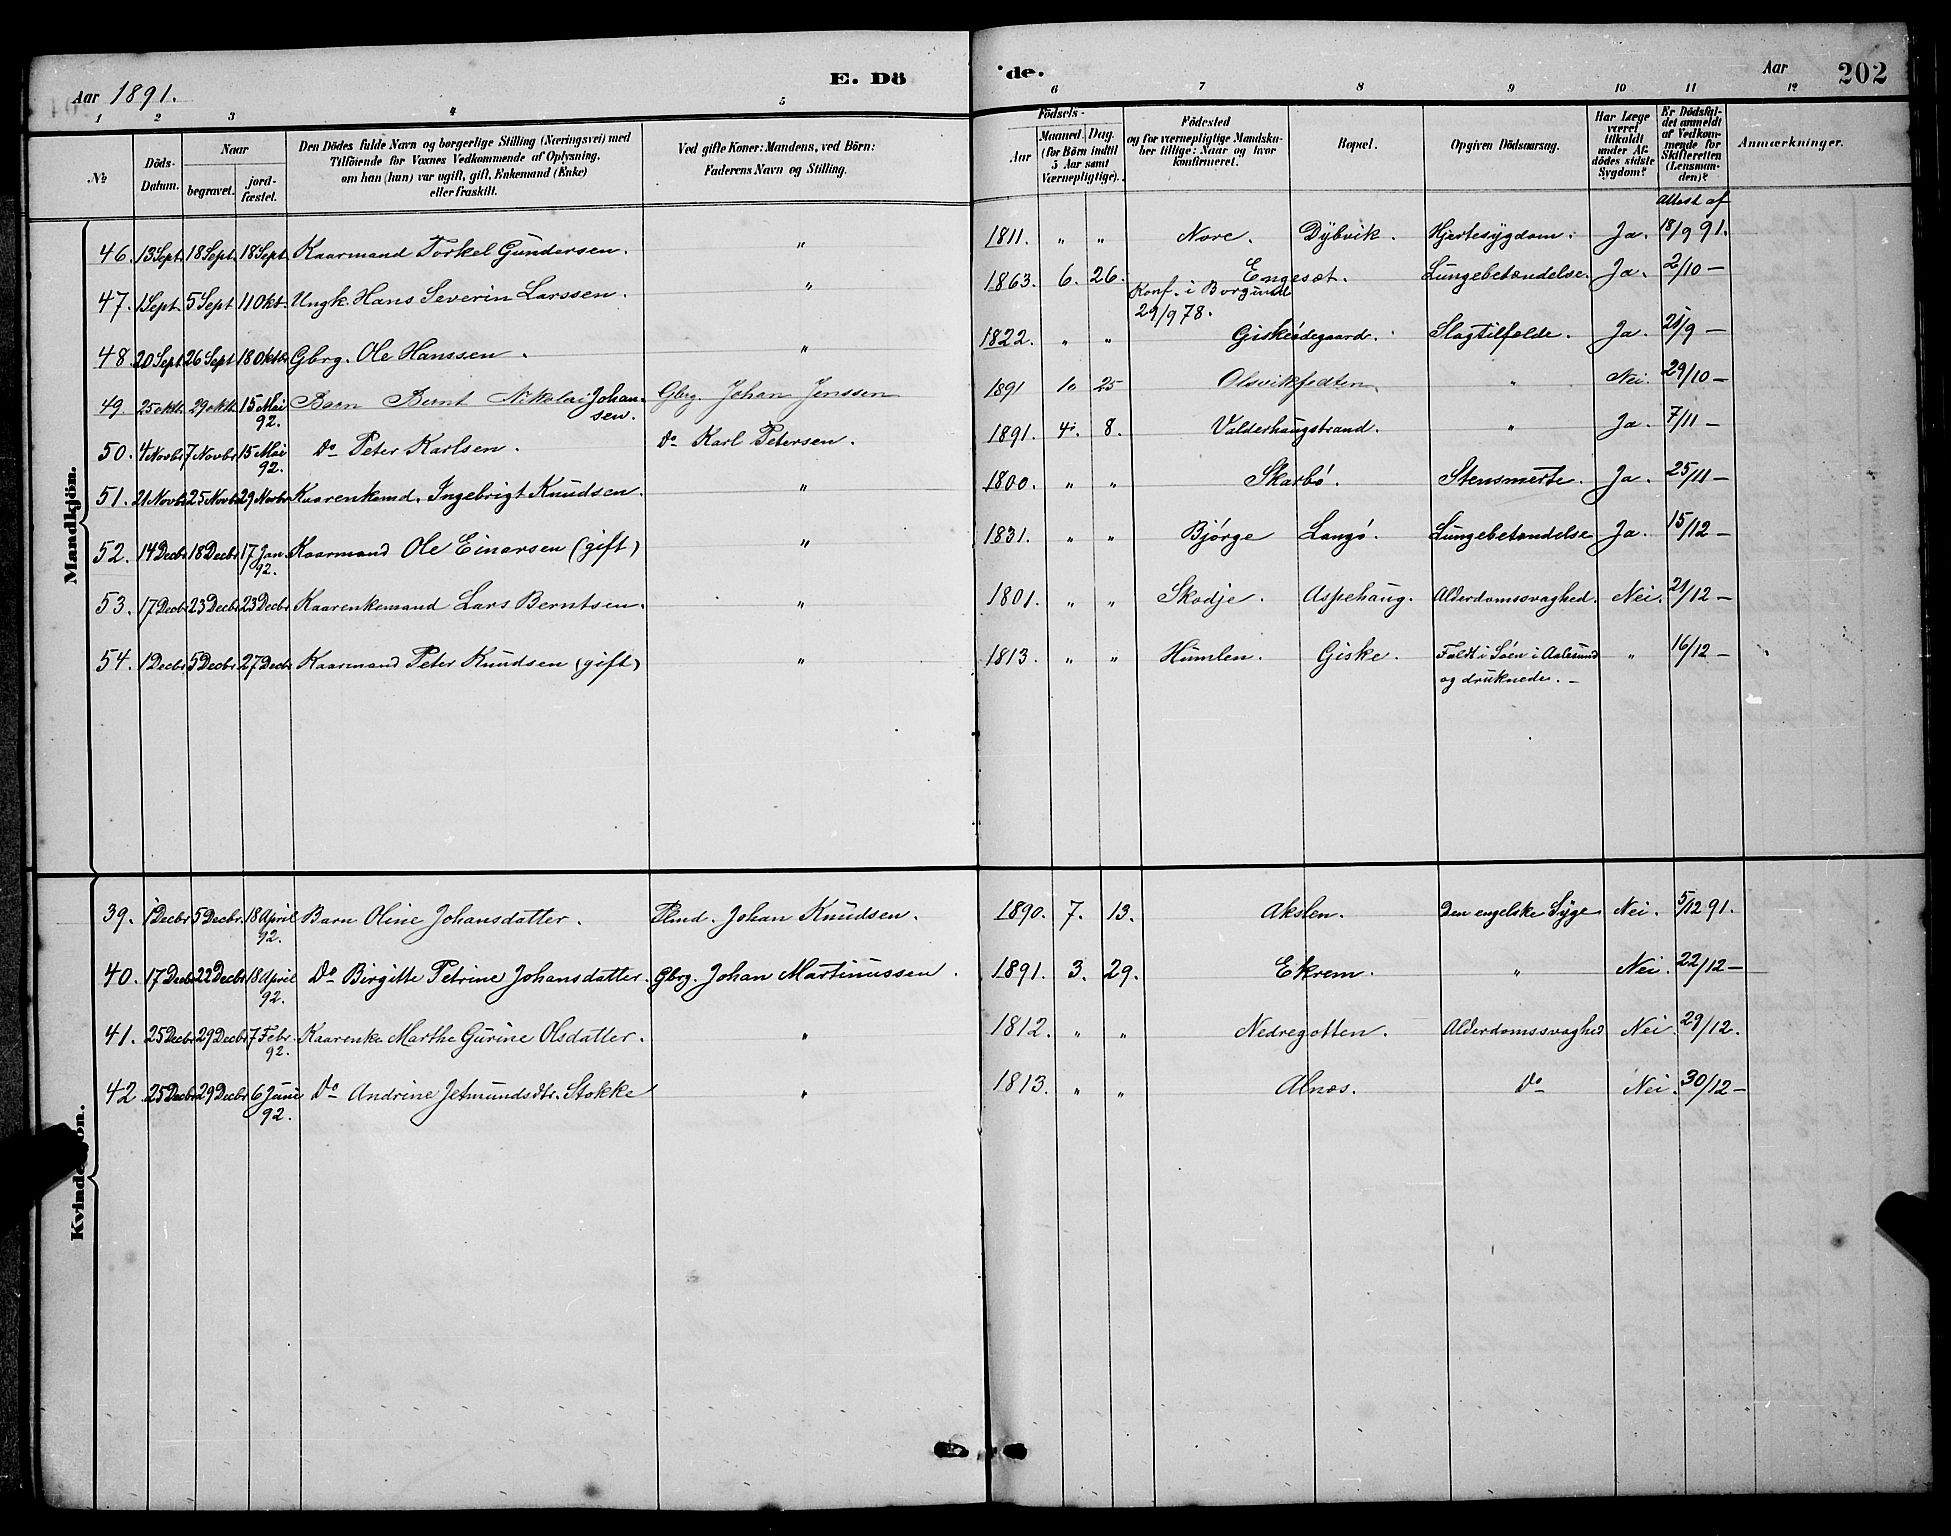 Aar 1891.
E. Dö
de.
Aar
202
1 2 3 4 5 6 7 8 9 10 11 12
№
Döds-Datum.
Naar
begravet.
jordfæstet.
Den Dödes fulde Navn og borgerlige Stilling (Næringsvei) med
Tilföiende for Voxnes Vedkommende af Oplysning,
om han (hun) var ugift, gift, Enkemand (Enke)
eller fraskilt.
Ved gifte Koner: Mandens, ved Börn:
Faderens Navn og Stilling.
Födsels-
Aar
Maaned. Dag.
(for Börn indtil
5 Aar samt
Værnepligtige).
Födested
og for værnepligtige Mandska-
ber tillige: Naar og hvor
konfirmeret.
Bopæl.
Opgiven Dödsaarsag.
Har Læge
været
tilkaldt
under Af-
dödes sidste
Sygdom?
Er Dödsfal-
det anmeldt
af Vedkom-
mende for
Skifteretten
(Lensman-
den)?
Anmærkninger.
Attest af
Mandkjön.
46. 13 Sept. 18 Sept. 18 Sept. Kaarmand Torkel Gundersen. " 1811. " " Nore. Dybvik. Hjertesygdom. Ja. 18/9 91.
47. 1 Sept. 5 Sept. 11 Okt. Ungk. Hans Severin Larssen. " 1863. 6. 26. Engesæt. Lungebetændelse. Ja. 2/10 —
Konf. i Borgund
29/9 78.
48 20 Sept 26 Sept 18 Oktb. Gbrg. Ole Hanssen. " 1822. " " Giskeødegaard. Slagtilfælde. Ja. 21/9 —
49 25 okt. 29 okt. 15 Mai Barn Bernt Nikolai Johan- Gbrg. Johan Jenssen 1891 1" 25 Olsvikfedten " Nei. 29/10 —
92. sen.
50. 4 Novbr 7 Novbr 15 Mai Do Peter Karlsen. Do Karl Petersen. 1891. 4. 8. Valderhaugstrand. " Ja. 7/11 —
92.
51. 21 Novbr 25 Novbr 29 Novbr Kaarenkemd. Ingebrigt Knudsen. " 1800. " " Skarbø. Stensmerte. Ja. 25/11 —
52. 14 Decbr 18 Decbr 17 Jan Kaarmand Ole Einarsen (gift) " 1831. " " Bjørge Langø. Lungebetændelse Ja. 15/12 —
92.
53. 17 Decbr 23 Decbr 23 Decbr Kaarenkemand Lars Berntsen. " 1801. " " Skodje. Aspehaug. Alderdomssvaghed. Nei. 21/12 —
54. 1 Decbr 5 Decbr 27 Decbr Kaarmand Peter Knudsen (gift) " 1813. " " Humlen. Giske. Faldt i Søen i Aalesund " 16/12 —
og druknede. —
Kvindekjön.
39. 1 Decbr 5 Decbr. 18 April Barn Oline Johansdatter. Plmd. Johan Knudsen. 1890. 7. 13. Akslen. Den engelske Syge Nei. 5/12 91.
92.
40. 17 Decbr 22 Decbr 18 April Do Birgitte Petrine Johansdatter. Gbrg. Johan Martinussen. 1891. 3. 29. Ekrem. " Nei. 22/12 —
92.
41. 25 Decbr 29 Decbr 7 Febr. Kaarenke Marthe Gurine Olsdatter. " 1812. " " Nedregotten. Alderdomssvaghed Nei. 29/12.
92.
42 25 Decbr 29 Decbr 6 Juni Do Andrine Jetmundsdtr. Stokke " 1813. " " Alnæs. Do Nei. 30/12 —
92.